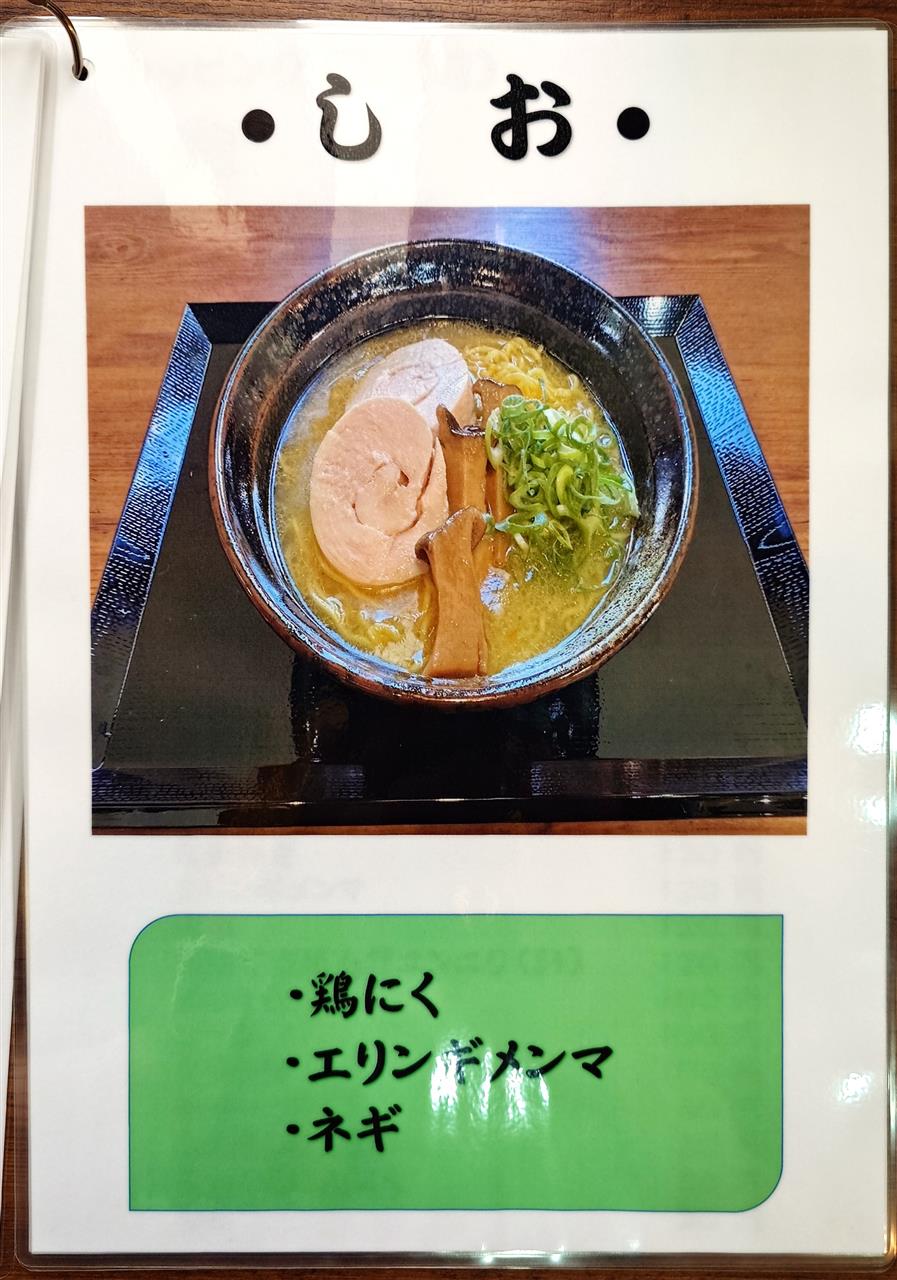 ・し お・
・鶏にく
・エリンギメンマ
・ネギ